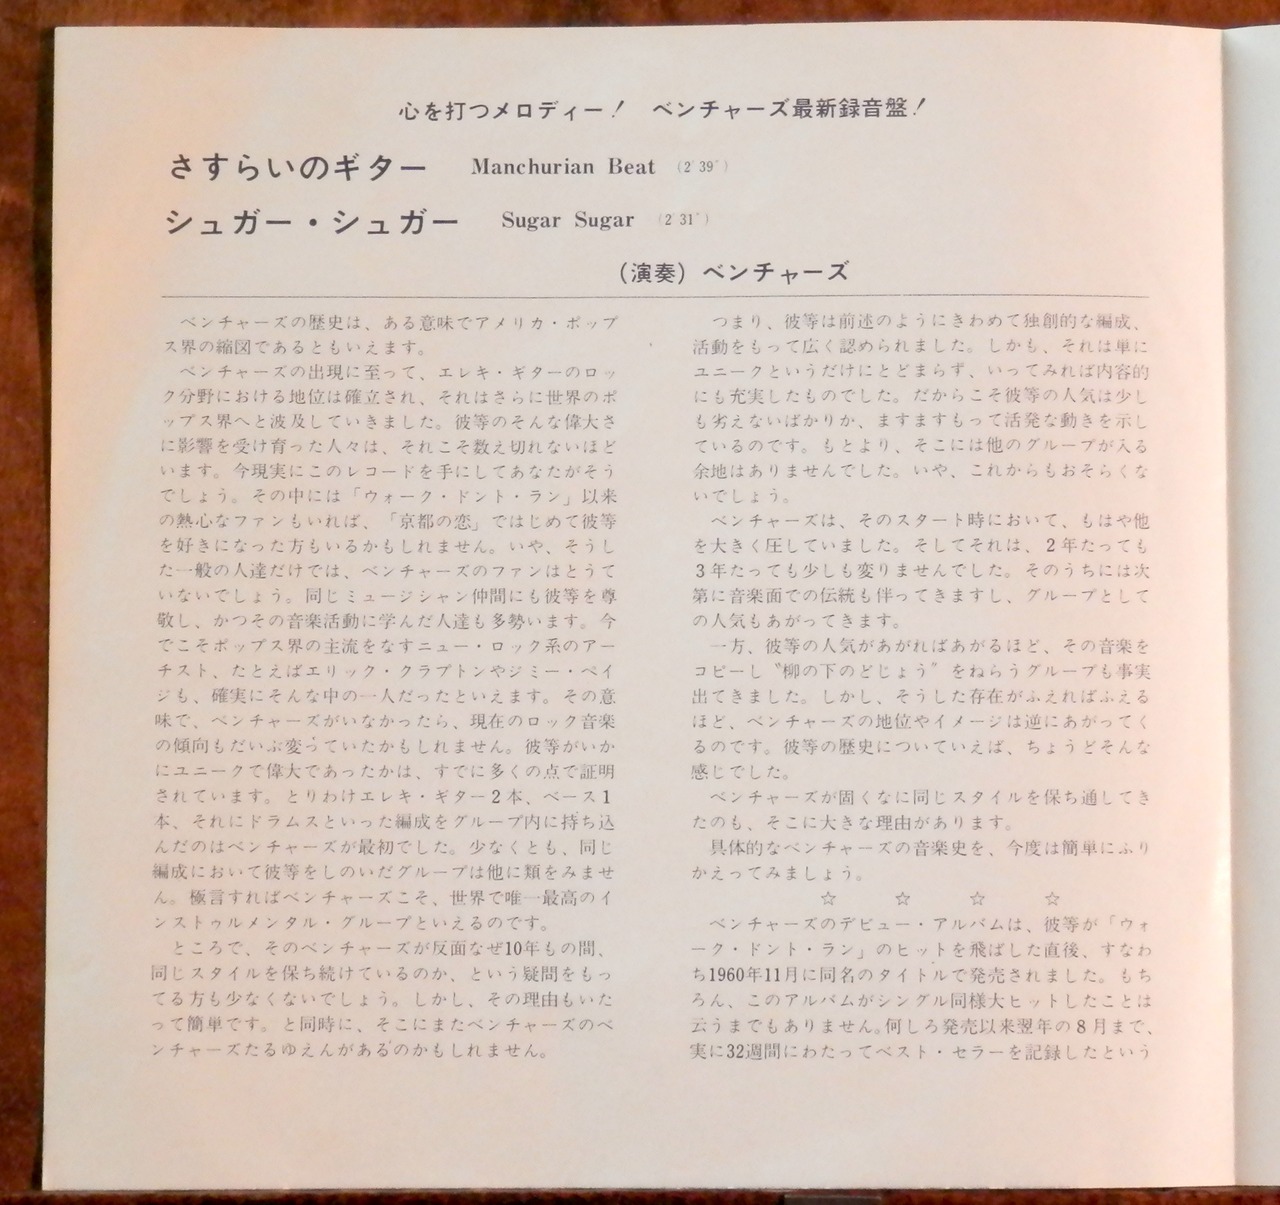 心を打つメロディー！　ベンチャーズ最新録音盤！
さすらいのギター　Manchurian Beat （2′39″）
シュガー・シュガー　Sugar Sugar （2′31″）
（演奏）ベンチャーズ
ベンチャーズの歴史は、ある意味でアメリカ・ポップ
ス界の縮図であるともいえます。
ベンチャーズの出現に至って、エレキ・ギターのロッ
ク分野における地位は確立され、それはさらに世界のポ
ップス界へと波及していきました。彼等のそんな偉大さ
に影響を受け育った人々は、それこそ数え切れないほど
います。今現実にこのレコードを手にしてあなたがそう
でしょう。その中には「ウォーク・ドント・ラン」以来
の熱心なファンもいれば、「京都の恋」ではじめて彼等
を好きになった方もいるかもしれません。いや、そうし
た一般の人達だけでは、ベンチャーズのファンはとうて
いないでしょう。同じミュージシャン仲間にも彼等を尊
敬し、かつその音楽活動に学んだ人達も多勢います。今
でこそポップス界の主流をなすニュー・ロック系のアー
チスト、たとえばエリック・クラプトンやジミー・ペイ
ジも、確実にそんな中の一人だったといえます。その意
味で、ベンチャーズがいなかったら、現在のロック音楽
の傾向もだいぶ変っていたかもしれません。彼等がいか
にユニークで偉大であったかは、すでに多くの点で証明
されています。とりわけエレキ・ギター2本、ベース1
本、それにドラムスといった編成をグループ内に持ち込
んだのはベンチャーズが最初でした。少なくとも、同じ
編成において彼等をしのいだグループは他に類をみませ
ん。極言すればベンチャーズこそ、世界で唯一最高のイ
ンストゥルメンタル・グループといえるのです。
ところで、そのベンチャーズが反面なぜ10年もの間、
同じスタイルを保ち続けているのか、という疑問をもっ
てる方も少なくないでしょう。しかし、その理由もいた
って簡単です。と同時に、そこにまたベンチャーズのベ
ンチャーズたるゆえんがあるのかもしれません。
つまり、彼等は前述のようにきわめて独創的な編成、
活動をもって広く認められました。しかも、それは単に
ユニークというだけにとどまらず、いってみれば内容的
にも充実したものでした。だからこそ彼等の人気は少し
も劣えないばかりか、ますますもって活発な動きを示し
ているのです。もとより、そこには他のグループが入る
余地はありませんでした。いや、これからもおそらくな
いでしょう。
ベンチャーズは、そのスタート時において、もはや他
を大きく圧していました。そしてそれは、2年たっても
3年たっても少しも変りませんでした。そのうちには次
第に音楽面での伝統も伴ってきますし、グループとして
の人気もあがってきます。
一方、彼等の人気があがればあがるほど、その音楽を
コピーし〝柳の下のどじょう〟をねらうグループも事実
出てきました。しかし、そうした存在がふえればふえる
ほど、ベンチャーズの地位やイメージは逆にあがってく
るのです。彼等の歴史についていえば、ちょうどそんな
感じでした。
ベンチャーズが固くなに同じスタイルを保ち通してき
たのも、そこに大きな理由があります。
具体的なベンチャーズの音楽史を、今度は簡単にふり
かえってみましょう。
☆　☆　☆　☆
ベンチャーズのデビュー・アルバムは、彼等が「ウォ
ーク・ドント・ラン」のヒットを飛ばした直後、すなわ
ち1960年11月に同名のタイトルで発売されました。もち
ろん、このアルバムがシングル同様大ヒットしたことは
云うまでもありません。何しろ発売以来翌年の8月まで、
実に32週間にわたってベスト・セラーを記録したという